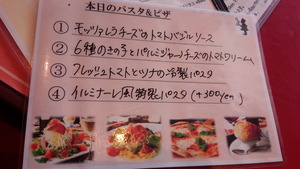 本日のパスタ&ピザ
① モッツァレラチーズのトマトバジルソース
② 6種のきのことパルミジャーノチーズのトマトクリーム
③ フレッシュトマトとツナの冷製パスタ
④ イルミナーレ風特製パスタ (+300yen)